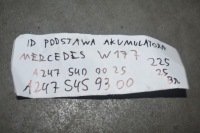 ID PODSTAWA AKUMULATORA
MERCEDES W177
A247 540 00 25 225
A247 545 93 00 25